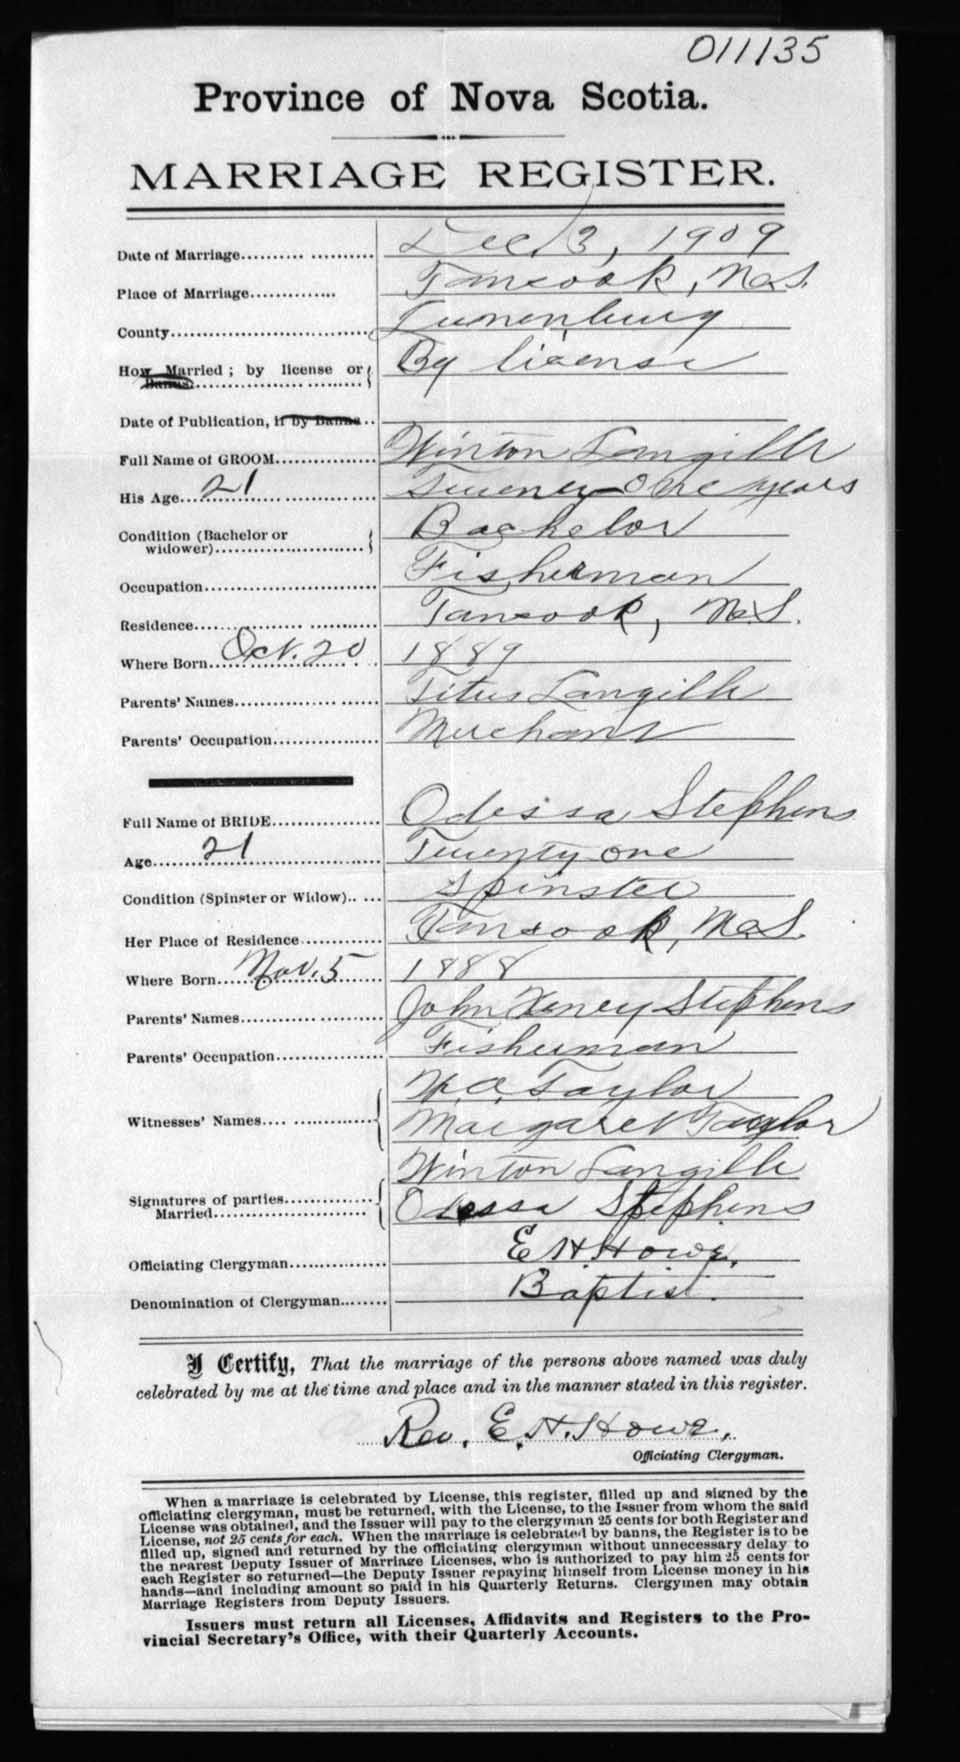 011135
Province of Nova Scotia.
MARRIAGE REGISTER.
Date of Marriage.......... Dec 13, 1909
Place of Marriage.............. Tancook, N.S.
County.............................. Lunenburg
How Married ; by license or By license
Banns.
Date of Publication, if by Banns..
Full Name of GROOM............... Winton Langille
His Age... 21 Tweney-One years
Condition (Bachelor or Bachelor
widower)......................
Occupation......................... Fisherman
Residence.......................... Tancook, N.S.
Where Born.. Oct. 20 1889
Parents' Names..................... Titus Langille
Parents' Occupation................ Merchant
Full Name of BRIDE................ Odessa Stephens
Age........ 21 Twenty one
Condition (Spinster or Widow)..... Spinster
Her Place of Residence............ Tancook, N.S.
Where Born.... Nov. 5 1888
Parents' Names..................... John Henry Stephens
Parents' Occupation................ Fisherman
W. A. Taylor
Witnesses' Names.... ............
Margaret Taylor
Winton Langille
Signatures of parties.............
Married...................... Odessa Stephens
Officiating Clergyman.............. E. H. Howe.
Denomination of Clergyman........ Baptist.
I Certify, That the marriage of the persons above named was duly
celebrated by me at the time and place and in the manner stated in this register.
Rev. E. H. Howe.
Officiating Clergyman.
When a marriage is celebrated by License, this register, filled up and signed by the
officiating clergyman, must be returned, with the License, to the Issuer from whom the said
License was obtained, and the Issuer will pay to the clergyman 25 cents for both Register and
License, not 25 cents for each. When the marriage is celebrated by banns, the Register is to be
filled up, signed and returned by the officiating clergyman without unnecessary delay to
the nearest Deputy Issuer of Marriage Licenses, who is authorized to pay him 25 cents for
each Register so returned—the Deputy Issuer repaying himself from License money in his
hands—and including amount so paid in his Quarterly Returns. Clergymen may obtain
Marriage Registers from Deputy Issuers.
Issuers must return all Licenses, Affidavits and Registers to the Pro-
vincial Secretary's Office, with their Quarterly Accounts.